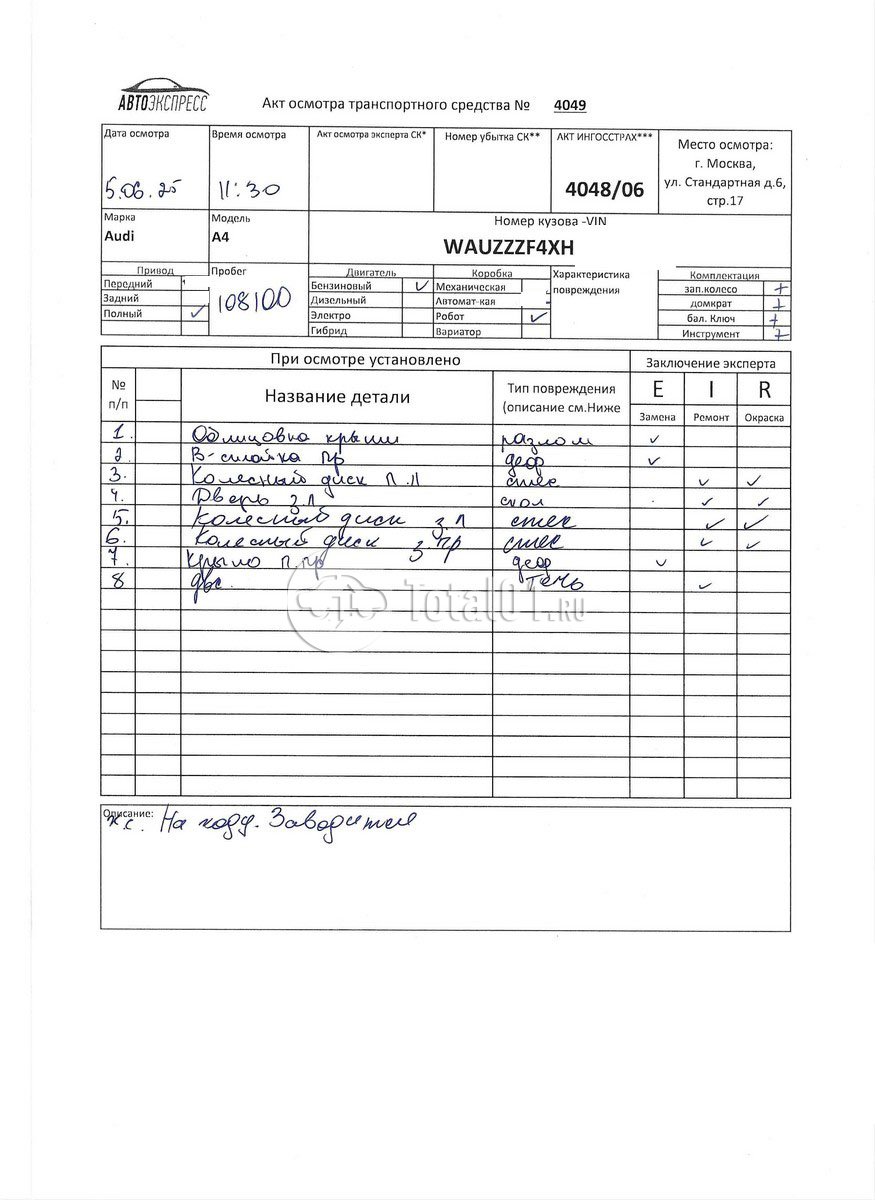 АВТОЭКСПРЕСС
Акт осмотра транспортного средства № 4049
Дата осмотра Время осмотра Акт осмотра эксперта СК* Номер убытка СК** АКТ ИНГОССТРАХ***
Место осмотра:
г. Москва,
ул. Стандартная д.6,
стр.17
5.06.25 11:30 4048/06
Марка Модель Номер кузова -VIN
Audi A4 WAUZZZF4XH
Привод Пробег Двигатель Коробка Характеристика повреждения Комплектация
Передний Бензиновый ✓ Механическая зап.колесо +
Задний 108100 Дизельный Автомат-кая домкрат +
Полный ✓ Электро Робот ✓ бал. Ключ +
Гибрид Вариатор Инструмент +
При осмотре установлено Заключение эксперта
№ п/п Название детали Тип повреждения (описание см.Ниже E I R
Замена Ремонт Окраска
1. Облицовка крыши разлом ✓
2. В-стойка пр деф ✓
3. Колесный диск П.Л ✓ ✓
4. Дверь з.л скол ✓ ✓
5. Колесный диск з л ✓ ✓
6. Колесный диск з.пр ✓ ✓
7. Крыло п.пр деф ✓
8 двс. Течь ✓
Total01.RU
Описание:
На ходу. Заводится